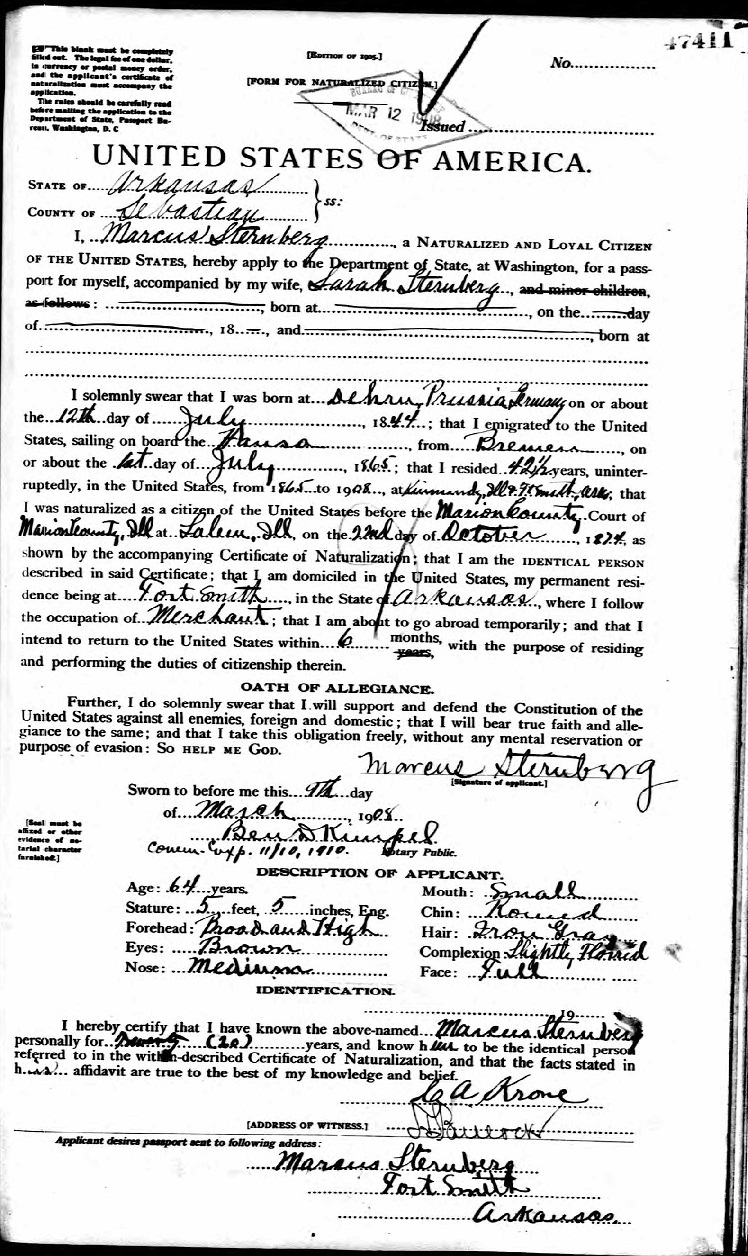 47411
This blank must be completely
filled out. The legal fee of one dollar,
in currency or postal money order,
and the applicant's certificate of
naturalization must accompany the
application.
The rules should be carefully read
before mailing the application to the
Department of State, Passport Bu-
reau, Washington, D. C
[EDITION OF 1905.]
[FORM FOR NATURALIZED CITIZEN.]
No.
BUREAU OF CITIZENSHIP
MAR 12 1908
DEPT. OF STATE
Issued
UNITED STATES OF AMERICA.
STATE OF Arkansas
COUNTY OF Sebastian } ss:
I, Marcus Sternberg, a NATURALIZED AND LOYAL CITIZEN
OF THE UNITED STATES, hereby apply to the Department of State, at Washington, for a pass-
port for myself, accompanied by my wife, Sarah Sternberg, and minor children,
as follows: , born at , on the day
of , 18 , and , born at
I solemnly swear that I was born at Prussia, Germany on or about
the 12th day of July, 1844; that I emigrated to the United
States, sailing on board the Hansa, from Bremen, on
or about the 1st day of July, 1865; that I resided 42½ years, uninter-
ruptedly, in the United States, from 1865 to 1908, at Kinmundy, Ill & Ft Smith, Ark; that
I was naturalized as a citizen of the United States before the Marion County Court of
Marion County, Ill at Salem, Ill, on the 22nd day of October, 1874, as
shown by the accompanying Certificate of Naturalization; that I am the IDENTICAL PERSON
described in said Certificate; that I am domiciled in the United States, my permanent resi-
dence being at Fort Smith, in the State of Arkansas, where I follow
the occupation of Merchant; that I am about to go abroad temporarily; and that I
intend to return to the United States within 6 months, years, with the purpose of residing
and performing the duties of citizenship therein.
OATH OF ALLEGIANCE.
Further, I do solemnly swear that I will support and defend the Constitution of the
United States against all enemies, foreign and domestic; that I will bear true faith and alle-
giance to the same; and that I take this obligation freely, without any mental reservation or
purpose of evasion: SO HELP ME GOD.
Marcus Sternberg
[Signature of applicant.]
Sworn to before me this 9th day
of March, 1908.
[Seal must be
affixed or other
evidence of no-
tarial character
furnished.]
Ben D Kimpel
Comm. Exp. 11/10, 1910. Notary Public.
DESCRIPTION OF APPLICANT.
Age: 64 years. Mouth: Small
Stature: 5 feet, 5 inches, Eng. Chin: Round
Forehead: Broad and High Hair: Iron Gray
Eyes: Brown Complexion: Slightly Florid
Nose: Medium Face: Full
IDENTIFICATION.
19
I hereby certify that I have known the above-named Marcus Sternberg
personally for Twenty (20) years, and know him to be the identical person
referred to in the within-described Certificate of Naturalization, and that the facts stated in
his affidavit are true to the best of my knowledge and belief.
C A Krone
[ADDRESS OF WITNESS.]
Applicant desires passport sent to following address:
Marcus Sternberg
Fort Smith
Arkansas.